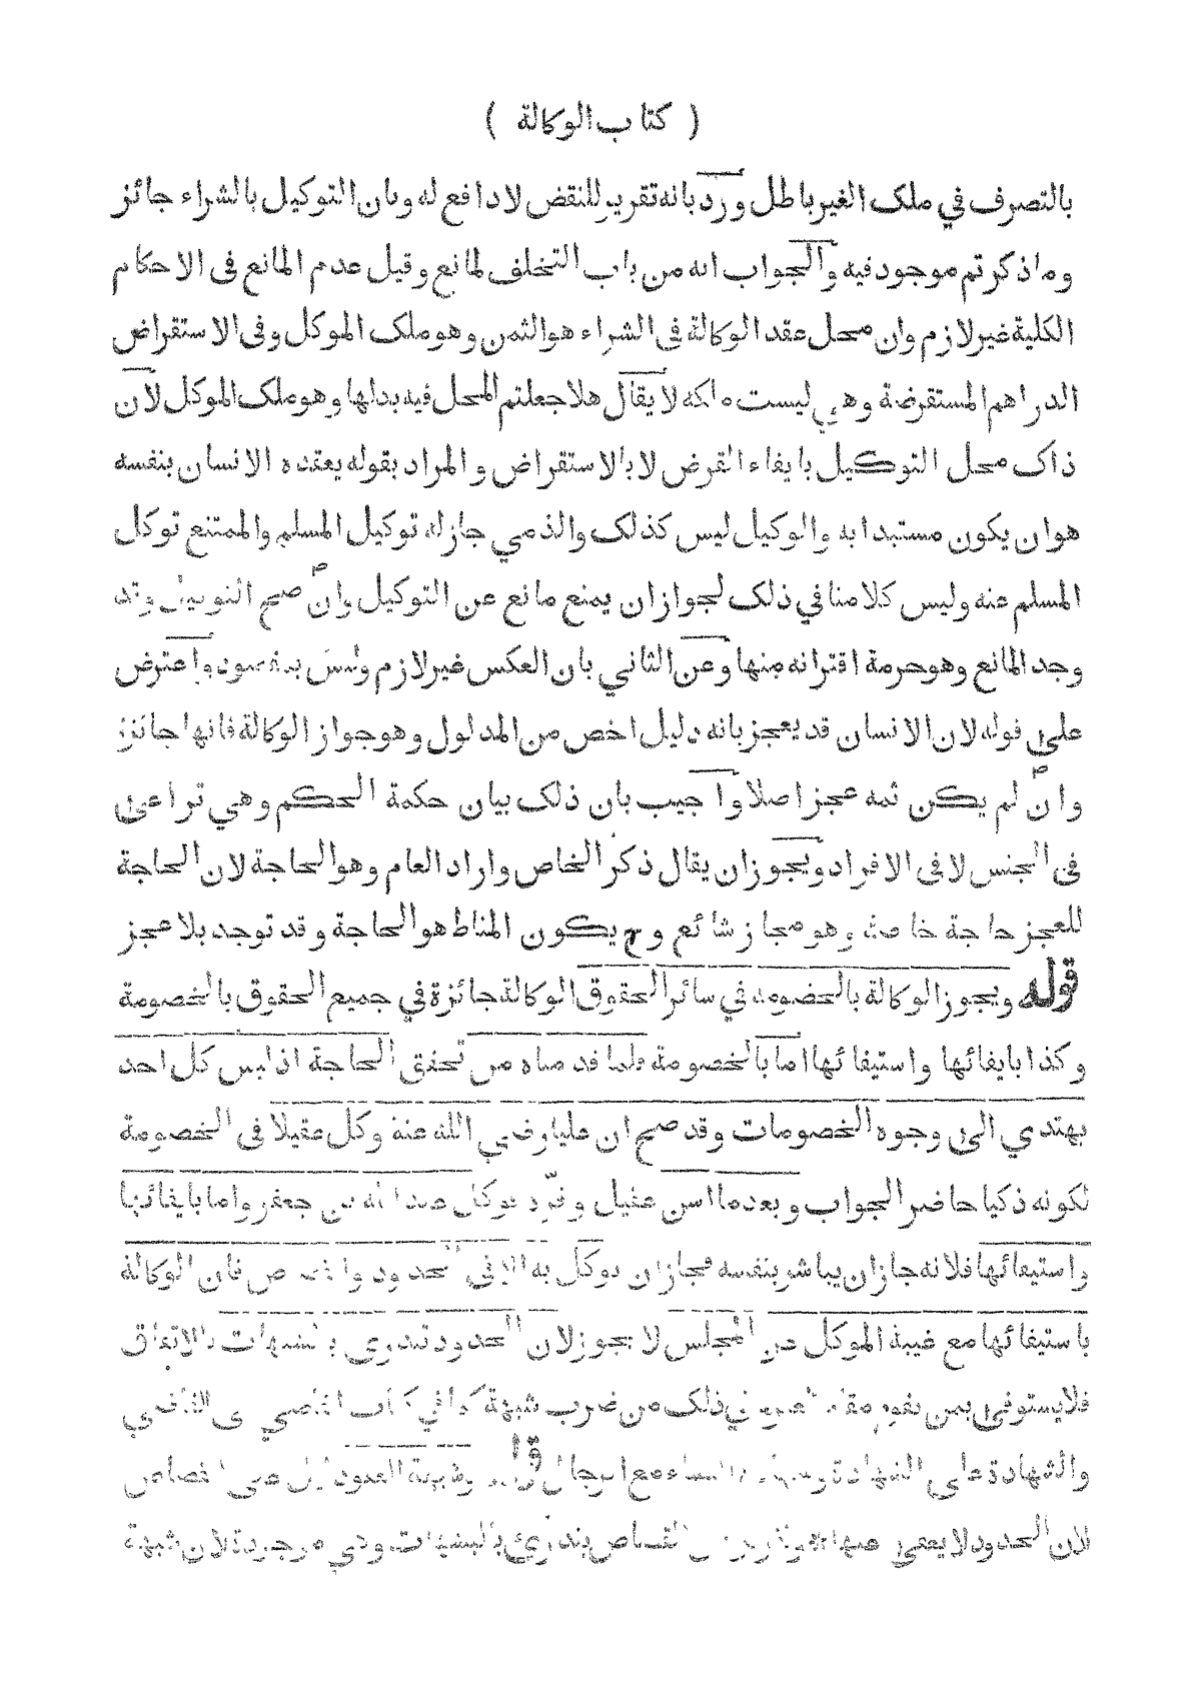 ( كتاب الوكالة )
بالتصرف في ملك الغير باطل ورد بانه تقرير للنقض لا دافع له وبان التوكيل بالشراء جائز
وما ذكرتم موجود فيه والجواب انه من باب التخلف لمانع وقيل عدم المانع فى الاحكام
الكلية غير لازم وان محل عقد الوكالة فى الشراء هو الثمن وهو ملك الموكل وفى الاستقراض
الدراهم المستقرضة وهي ليست ملكه لا يقال هلا جعلتم المحل فيه بدلها وهو ملك الموكل لان
ذاك محل التوكيل بايفاء القرض لا بالاستقراض والمراد بقوله يعقده الانسان بنفسه
هو ان يكون مستبدا به والوكيل ليس كذلك والذمي جاز له توكيل المسلم والممتنع توكل
المسلم عنه وليس كلامنا في ذلك لجواز ان يمنع مانع عن التوكيل وان صح التوكيل وقد
وجد المانع وهو حرمة اقترانه منها وعن الثاني بان العكس غير لازم وليس بمقصود واعترض
على قوله لان الانسان قد يعجز بانه دليل اخص من المدلول وهو جواز الوكالة فانها جائزة
وان لم يكن ثمه عجز اصلا واجيب بان ذلك بيان حكمة الحكم وهي تراعى
فى الجنس لا فى الافراد ويجوز ان يقال ذكر الخاص واراد العام وهو الحاجة لان الحاجة
للعجز حاجة خاصة وهو مجاز شائع وح يكون المناط هو الحاجة وقد توجد بلا عجز
قوله ويجوز الوكالة بالخصومة في سائر الحقوق الوكالة جائزة في جميع الحقوق بالخصومة
وكذا بايفائها واستيفائها اما بالخصومة فلما قدمناه من تحقق الحاجة اذ ليس كل احد
يهتدي الى وجوه الخصومات وقد صح ان عليا رضي الله عنه وكل عقيلا فى الخصومة
لكونه ذكيا حاضر الجواب وبعد ما اسن عقيل وقر توكل عبد الله بن جعفر واما بايفائها
واستيفائها فلانه جاز ان يباشر بنفسه فجاز ان يوكل به الا فى الحدود والقصاص فان الوكالة
باستيفائها مع غيبة الموكل عن المجلس لا يجوز لان الحدود تندرى بالشبهات بالاتفاق
فلا يستوفى بمن يقوم مقام الغير لما في ذلك من ضرب شبهة كما في كتاب القاضي الى القاضي
والشهادة على الشهادة وشهادة النساء مع الرجال وشبهة العفو
لان الحدود لا يعفى عنها القصاص يندرى بالشبهات وهي موجودة لان شبهة